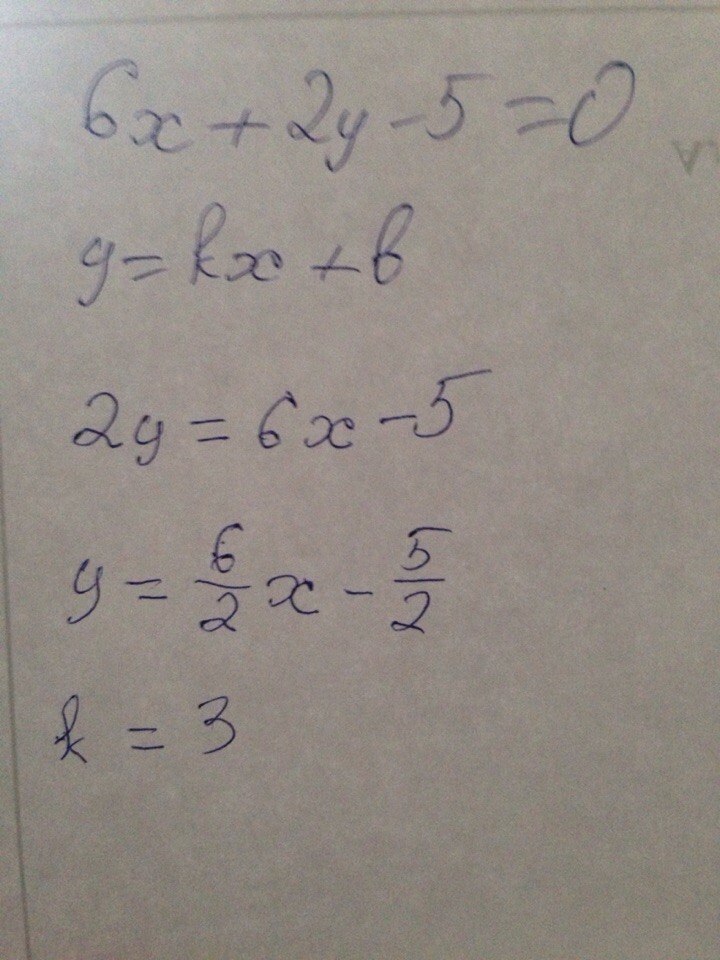 6x + 2y - 5 = 0
y = kx + b
2y = 6x - 5
y = \frac{6}{2}x - \frac{5}{2}
k = 3